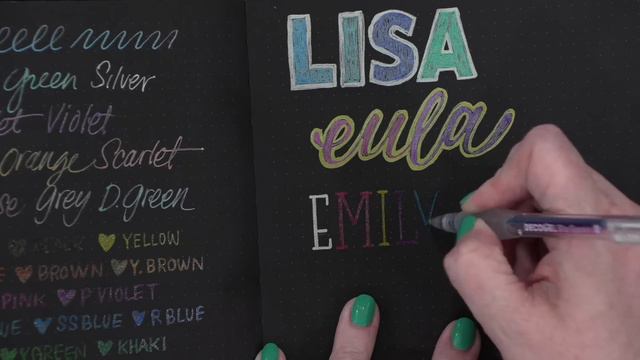 Green Silver
Violet
Orange Scarlet
Grey D.Green
YELLOW
BROWN Y.BROWN
PINK P VIOLET
SSBLUE R BLUE
Y.GREEN KHAKI
LISA
eula
EMILY